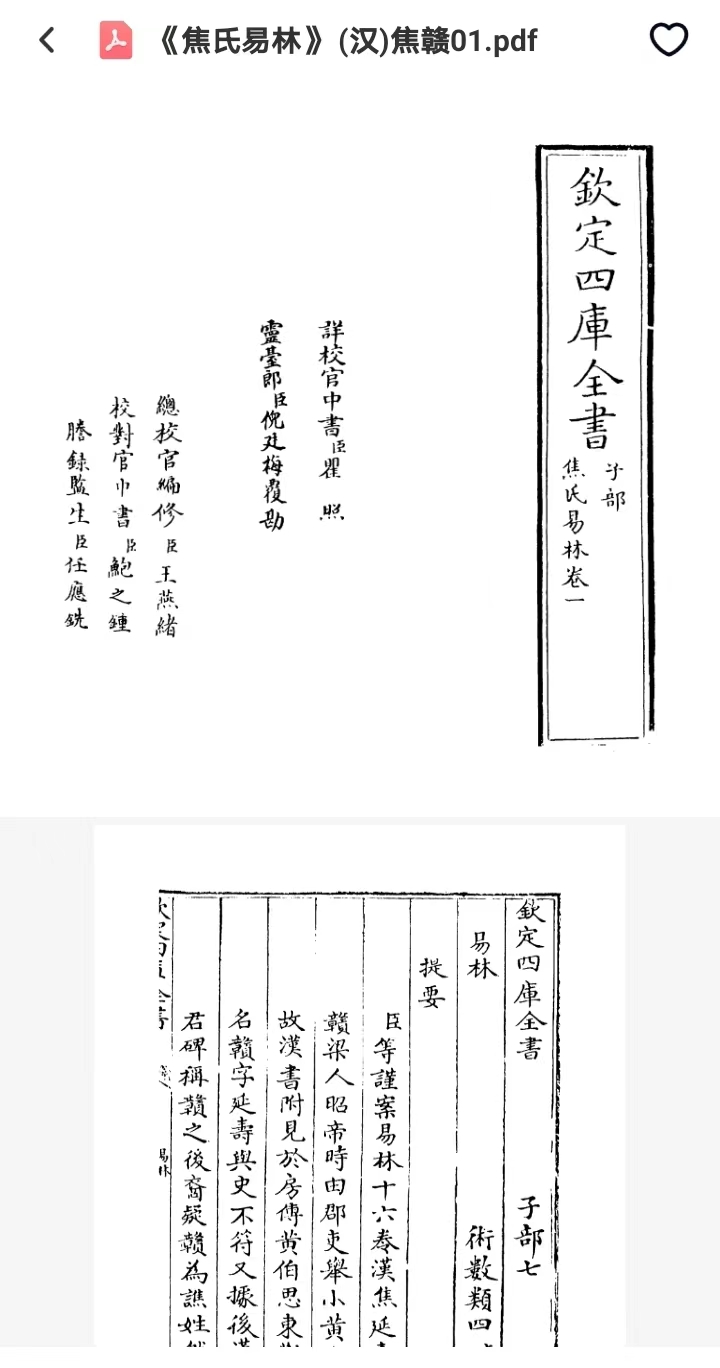 《焦氏易林》(汉)焦赣01.pdf
欽定四庫全書
子部
焦氏易林卷一
詳校官中書臣瞿照
靈臺郎臣倪廷梅覆勘
總校官編修臣王燕緒
校對官中書臣鮑之鍾
謄錄監生臣任應銑
欽定四庫全書 子部七
易林 術數類四
提要
臣等謹案易林十六卷漢焦延
贛梁人昭帝時由郡吏舉小黃
故漢書附見於房傳黃伯思東
名贛字延壽與史不符又據後漢
君碑稱贛之後裔疑贛為譙姓
易林